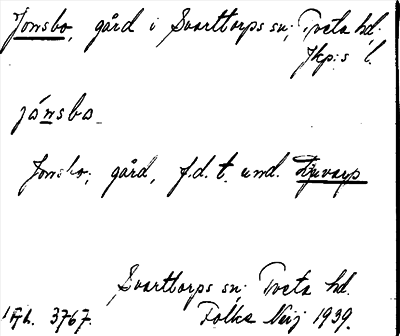 Jonsbo, gård i Svarttorps sn; Tveta hd.
Jkp:s l.
jónsbo_
Jonsbo; gård, f.d. t. und. Djuvarp
Svarttorps sn: Tveta hd.
Acc. 3767. Folke Neij 1939